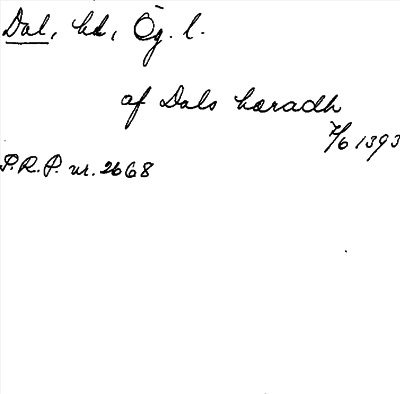 Dal, hd, Ög. l.
af Dals hæradh
7/6 1393
P.R.P. nr. 2668